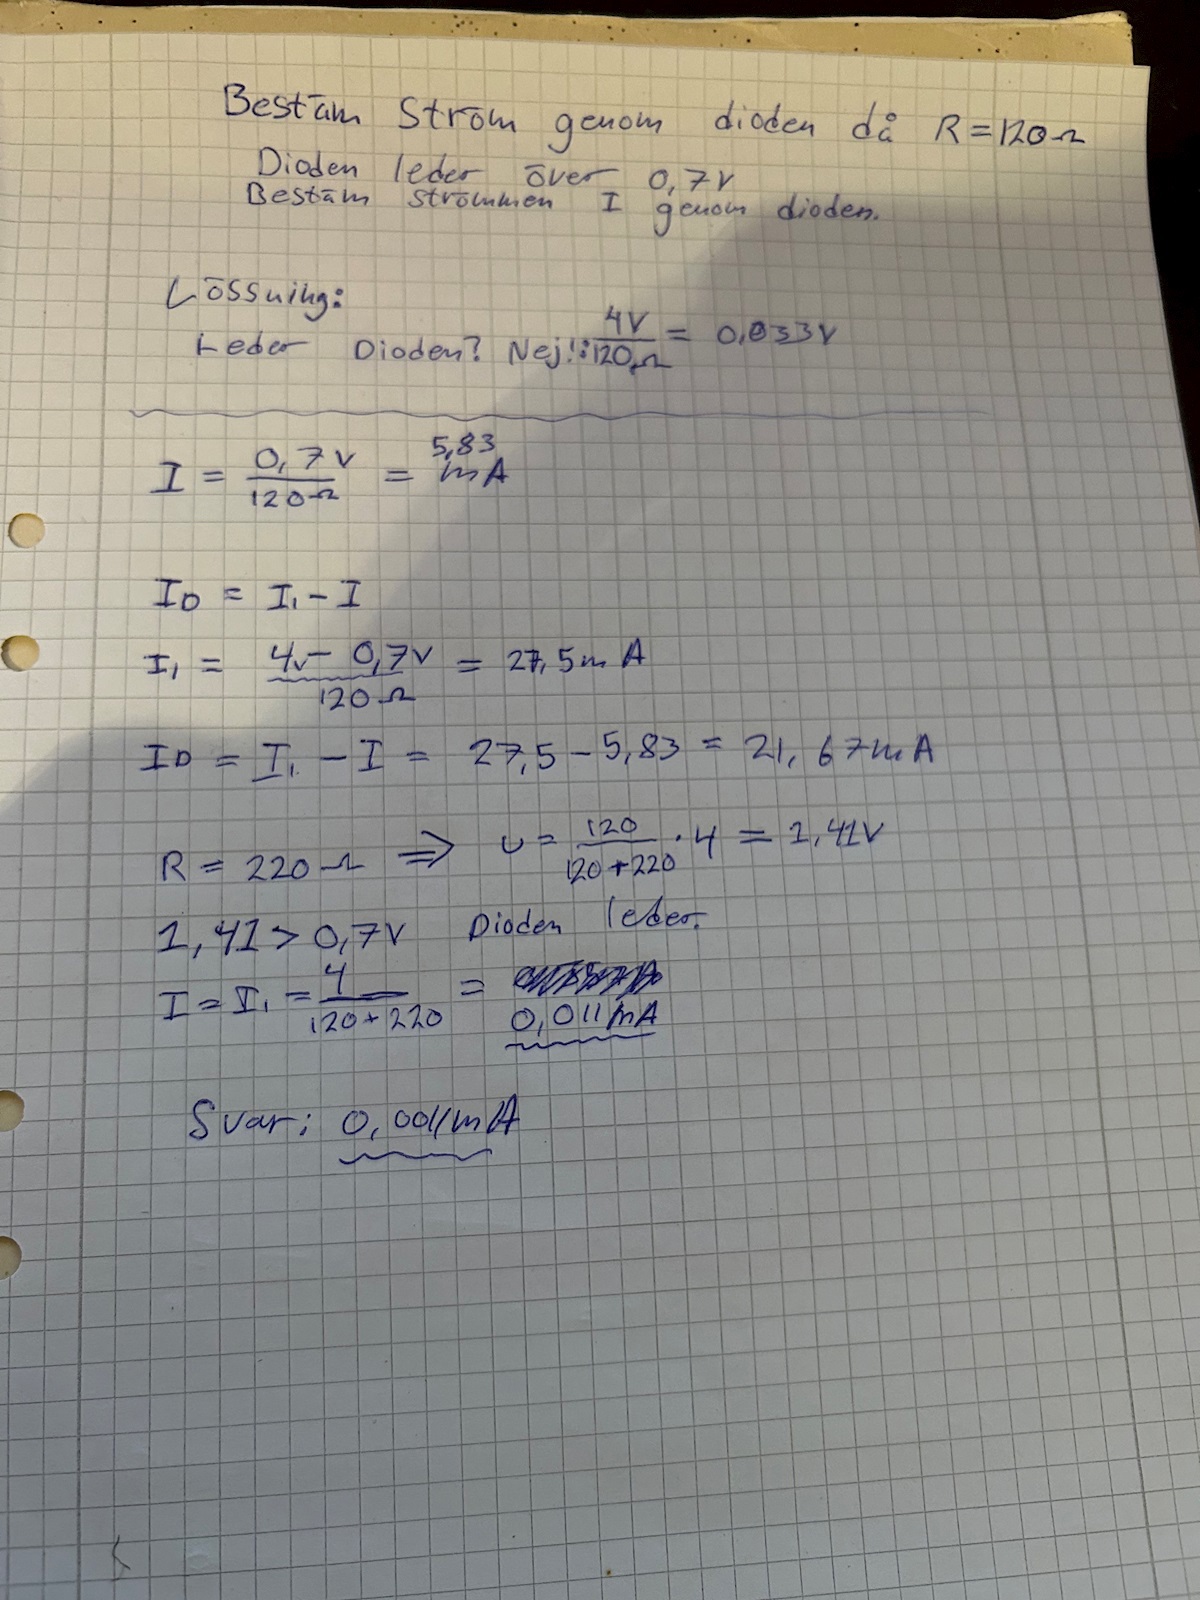 Bestäm Ström genom dioden då R = 120Ω
Dioden leder över 0,7V
Bestäm strömmen I genom dioden.
Lössning:
Leder Dioden? Nej!: 4V/120Ω = 0,033V
I = 0,7V/120Ω = 5,83 mA
ID = I1 - I
I1 = 4V - 0,7V/120Ω = 27,5mA
ID = I1 - I = 27,5 - 5,83 = 21,67mA
R = 220Ω ⇒ U = 120/120+220 · 4 = 1,41V
1,41 > 0,7V Dioden leder.
I = I1 = 4/120+220 = 0,011mA
Svar: 0,0011mA